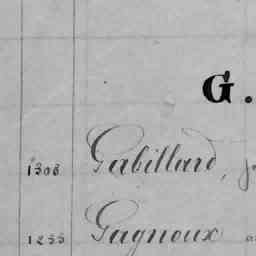 G.
1308 Gabillard,
1255 Gagneux